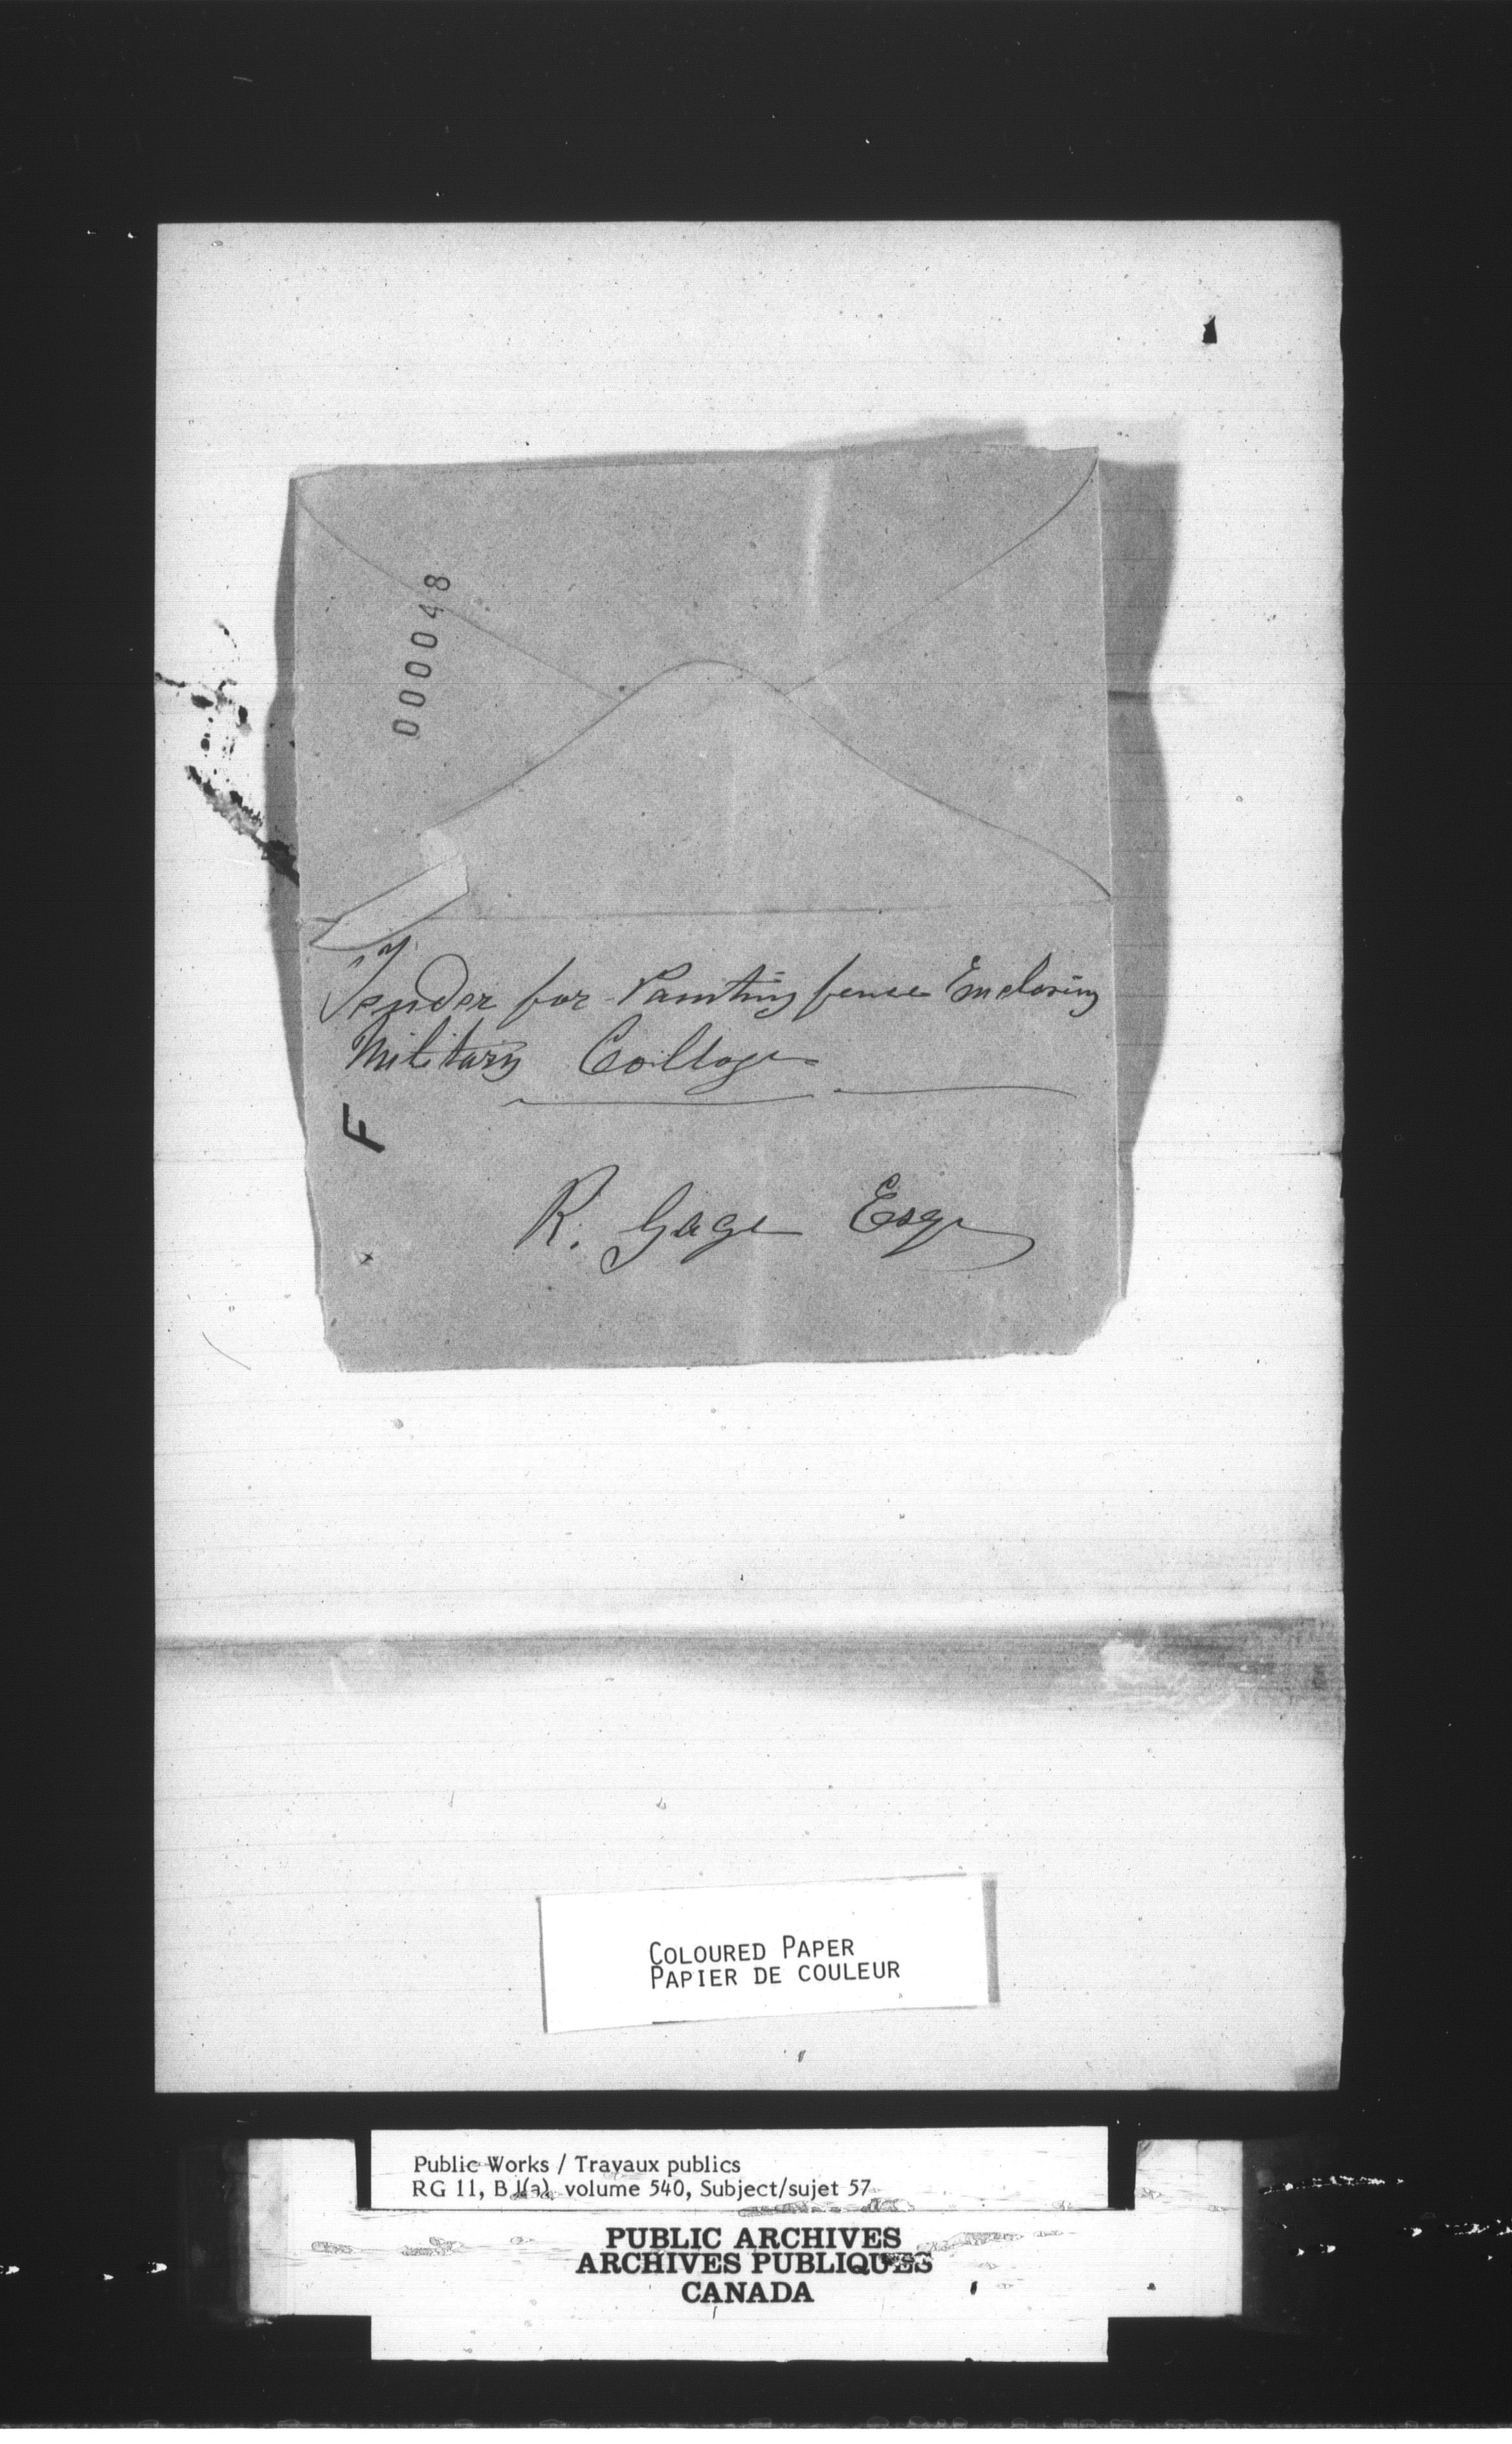 000048
Tender for Painting fence Enclosing
Military College
F
R. Gage Esqr
COLOURED PAPER
PAPIER DE COULEUR
Public Works / Travaux publics
RG 11, B 1(a), volume 540, Subject/sujet 57
PUBLIC ARCHIVES
ARCHIVES PUBLIQUES
CANADA